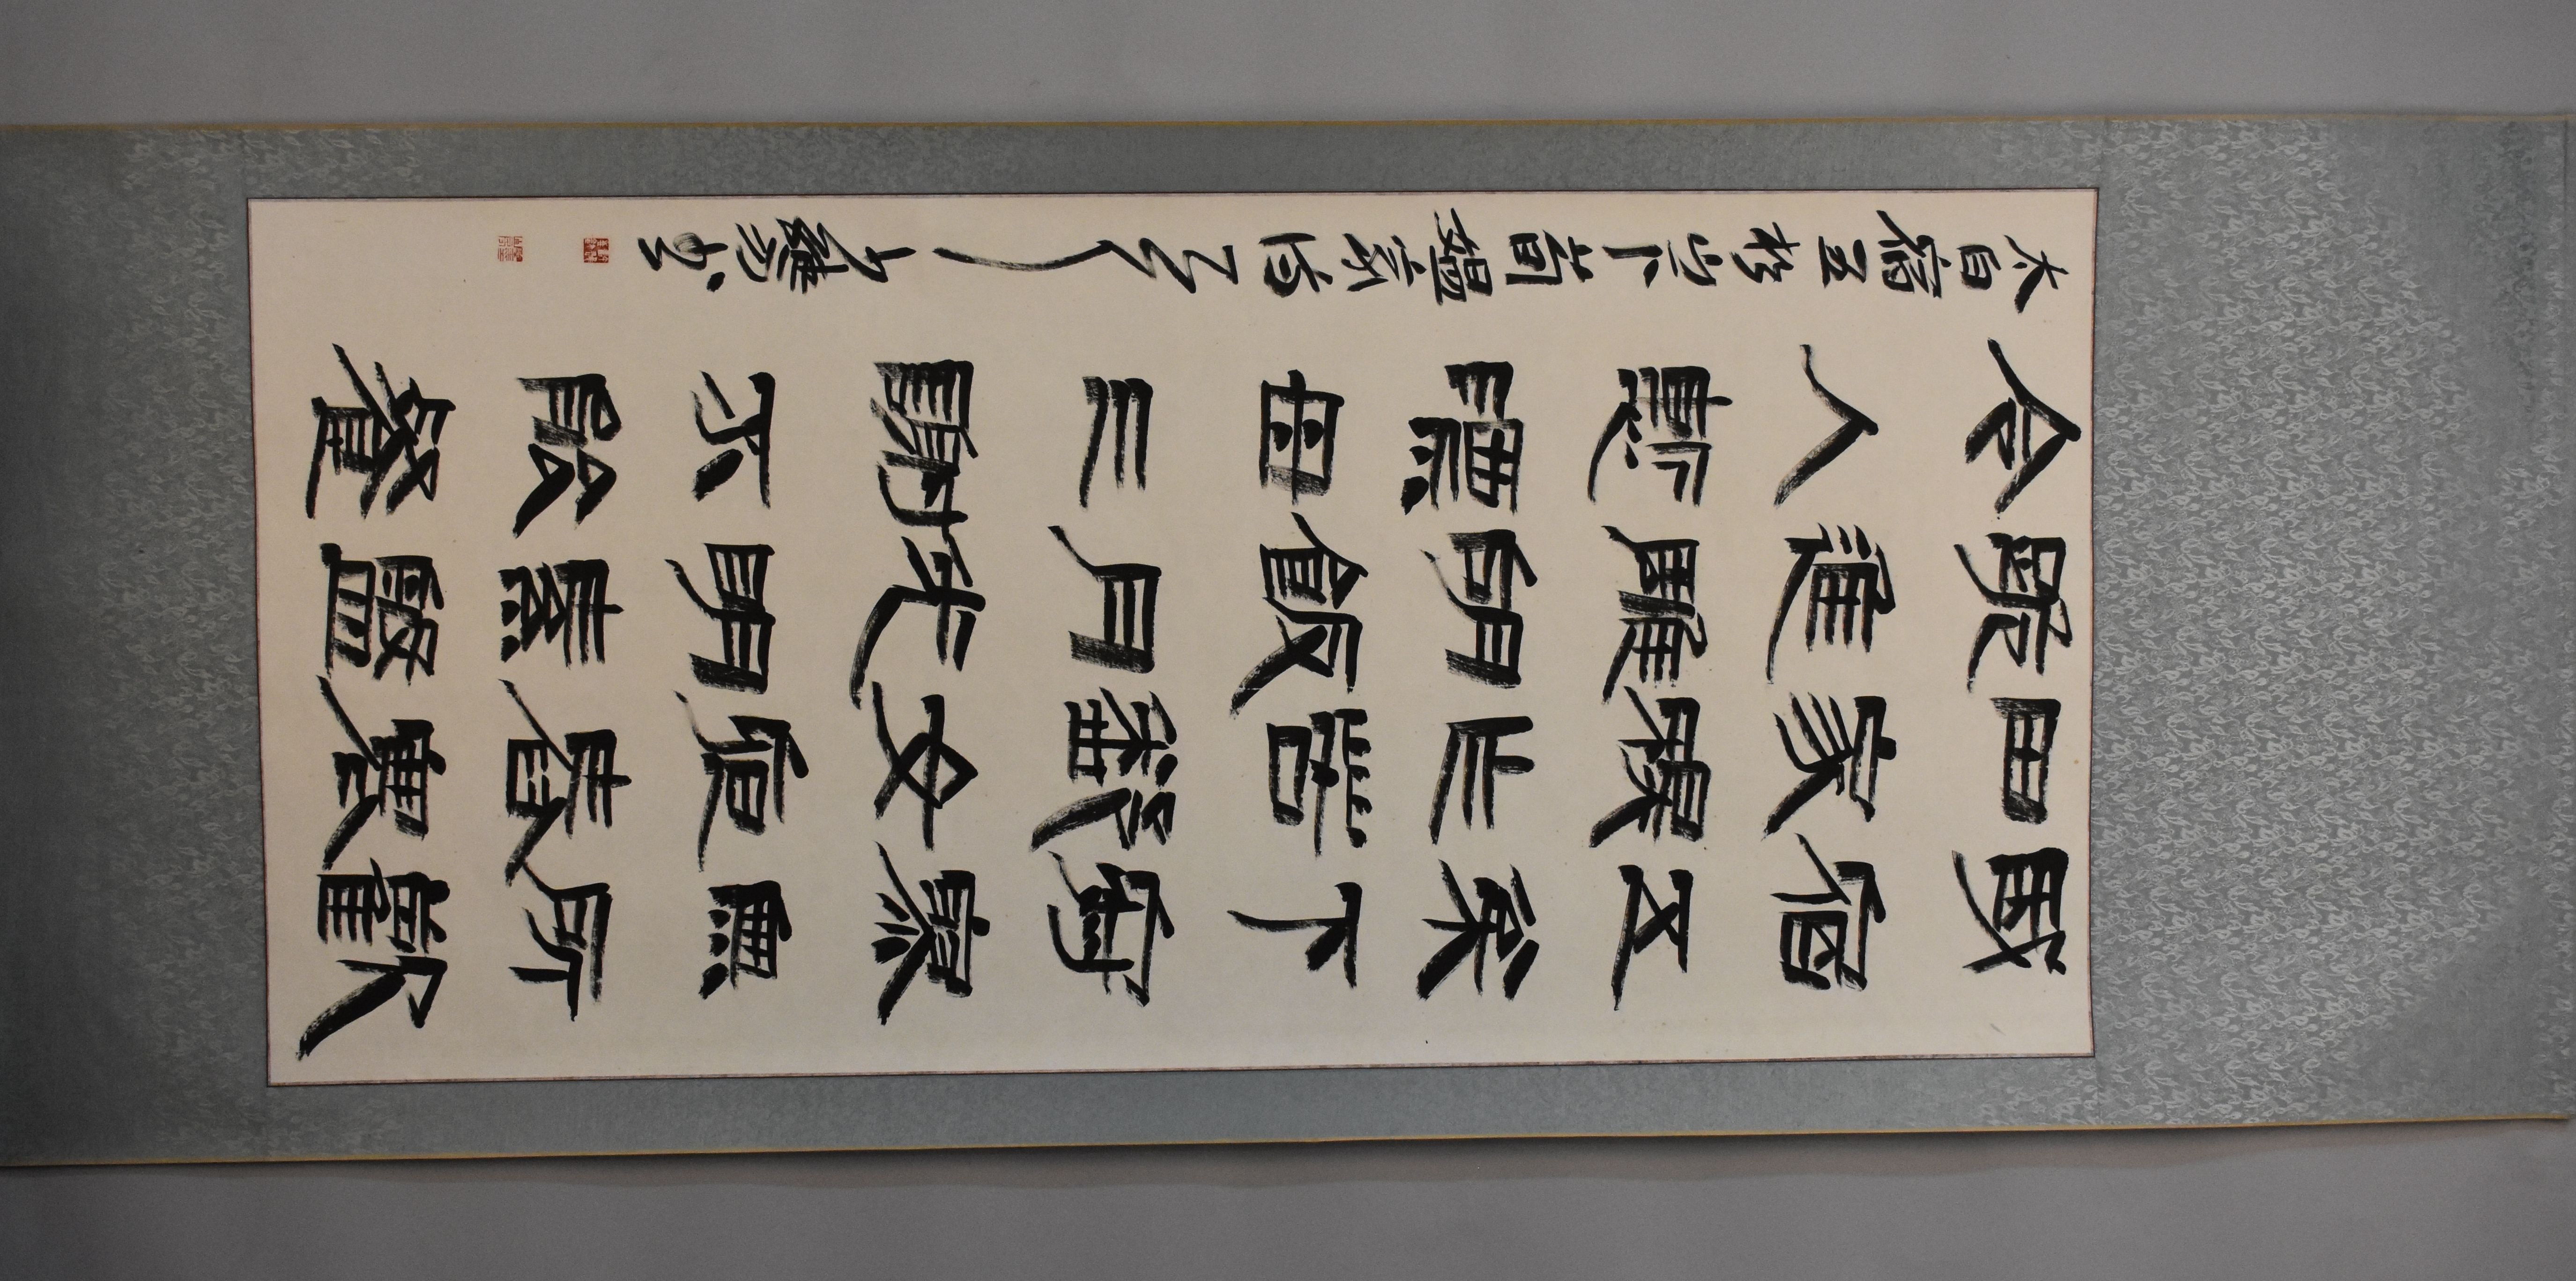 我宿五松下寂寥無所歡
田家秋作苦鄰女夜舂寒
跪進雕胡飯月光明素盤
令人慚漂母三謝不能餐
太白宿五松山下荀媼家詩 書